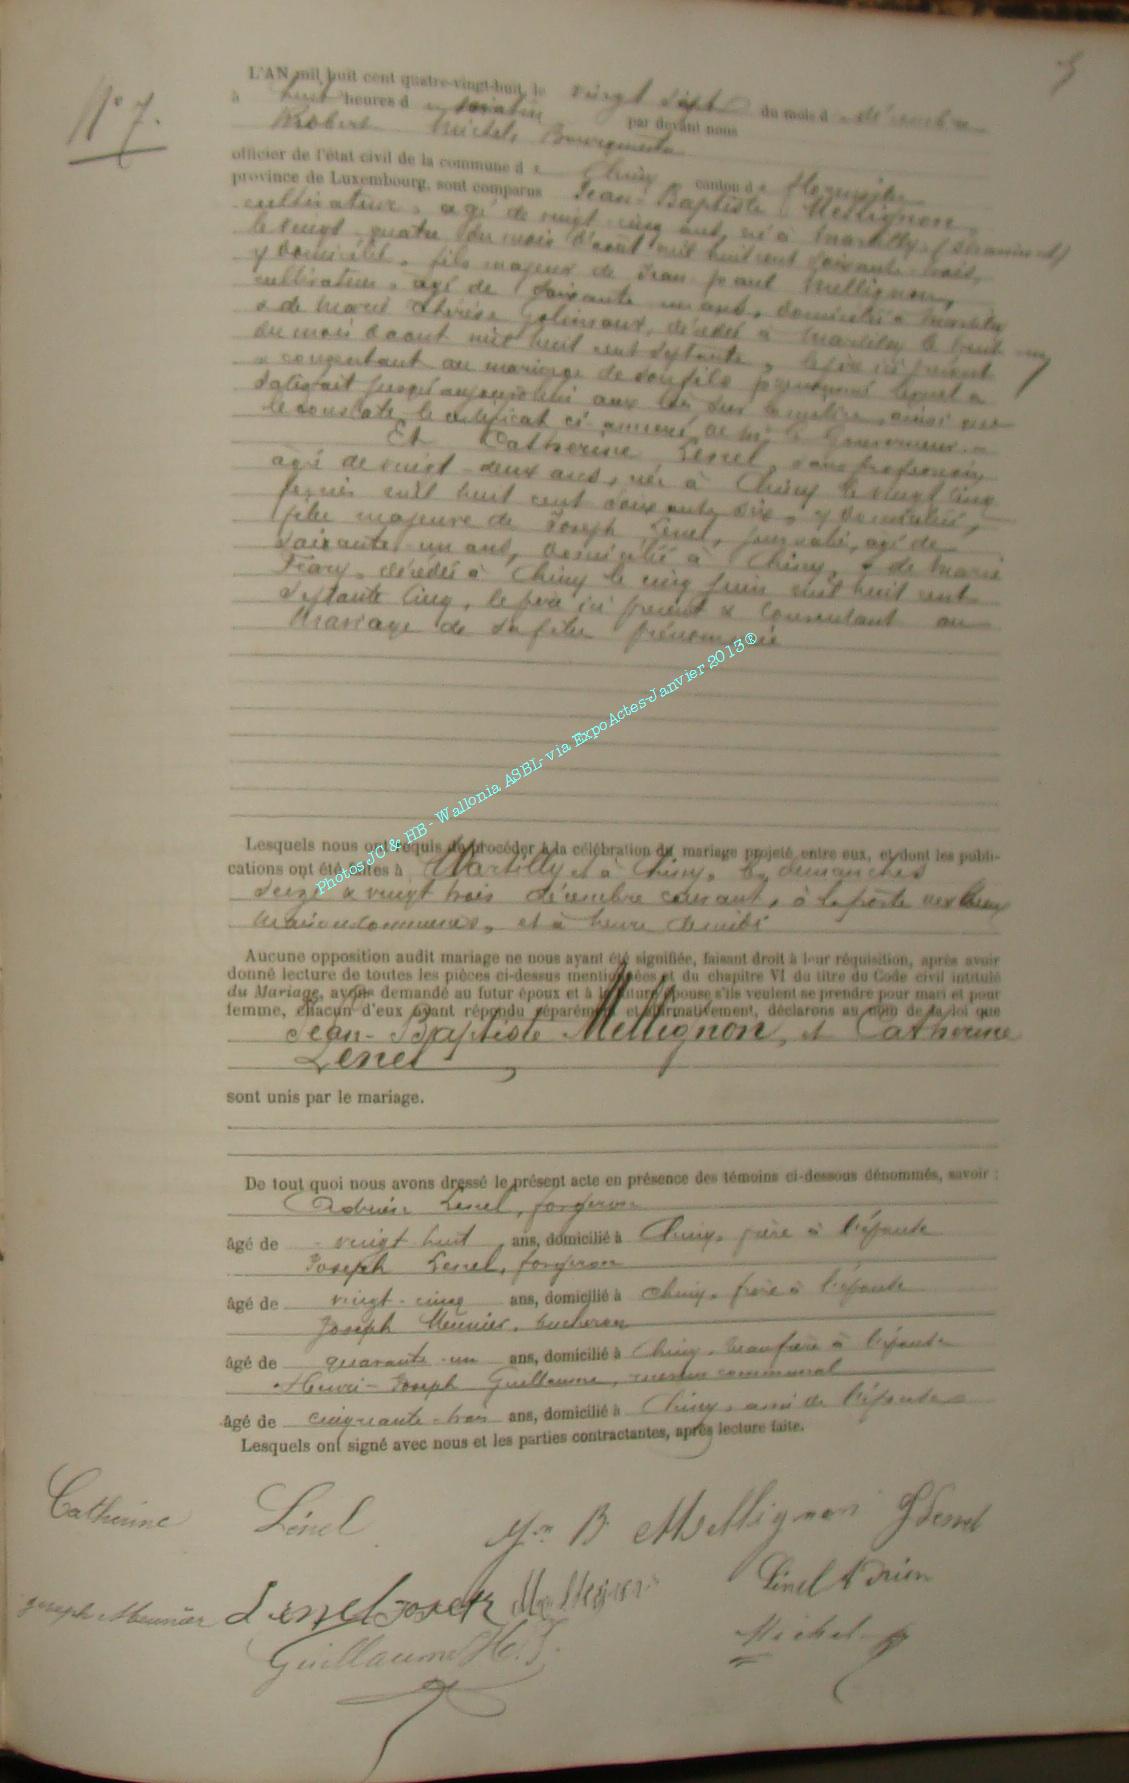 N° 7.
L'AN mil huit cent quatre-vingt-huit, le vingt sept du mois d décembre
à huit heures d u matin par devant nous
Robert Michel, Bourgmestre
officier de l'état civil de la commune d e Chiny canton d e Florenville
province de Luxembourg, sont comparus Jean-Baptiste Mellignon,
cultivateur, agé de vingt-cinq ans, né à Martilly (Straimont)
le vingt-quatre du mois d'août mil huit cent soixante-trois,
y domicilié, fils majeur de Jean Mellignon,
cultivateur, agé de soixante un ans, domicilié à Martilly
& de Marie Thérèse décédée à Martilly le
du mois d'aout mil huit cent septante, le père ici présent
& consentant au mariage de son fils prénommé lequel a
satisfait jusqu'aujourd'hui aux lois sur la milice, ainsi que
le constate le certificat ci-annexé de Mr le Gouverneur.
Et Catherine Lenel, sans profession,
agée de vingt-deux ans, née à Chiny le vingt cinq
mil huit cent soixante six, y domiciliée,
fille majeure de Joseph Lenel, journalier, agé de
soixante-un ans, domicilié à Chiny, & de Marie
décédée à Chiny le cinq juin mil huit cent
septante cinq, le père ici présent & consentant au
mariage de sa fille prénommée
Photos JC & HB - Wallonia ASBL- via ExpoActes-Janvier 2013®
Lesquels nous ont requis de procéder à la célébration du mariage projeté entre eux, et dont les publi-
cations ont été faites à Martilly et à Chiny, les dimanches
seize & vingt trois décembre courant, à la porte des deux
maisons communes, et à heure de midi
Aucune opposition audit mariage ne nous ayant été signifiée, faisant droit à leur réquisition, après avoir
donné lecture de toutes les pièces ci-dessus mentionnées et du chapitre VI du titre du Code civil intitulé
du Mariage, avons demandé au futur époux et à la future épouse s'ils veulent se prendre pour mari et pour
femme, chacun d'eux ayant répondu séparément et affirmativement, déclarons au nom de la loi que
Jean-Baptiste Mellignon, et Catherine
Lenel
sont unis par le mariage.
De tout quoi nous avons dressé le présent acte en présence des témoins ci-dessous dénommés, savoir :
Adrien Lenel, forgeron
âgé de vingt huit ans, domicilié à Chiny, frère à l'épouse
Joseph Lenel, forgeron
âgé de vingt-cinq ans, domicilié à Chiny, frère à l'épouse
Joseph Meunier, bucheron
âgé de quarante-un ans, domicilié à Chiny, beau frère à l'épouse
Henri-Joseph Guillaume, communal
âgé de cinquante-trois ans, domicilié à Chiny, ami de l'épouse
Lesquels ont signé avec nous et les parties contractantes, après lecture faite.
Catherine Lénel J. B. Mellignon J Lenel
Joseph Meunier Lenel Joseph Mellignon Lénel Adrien
Guillaume H. J. Michel